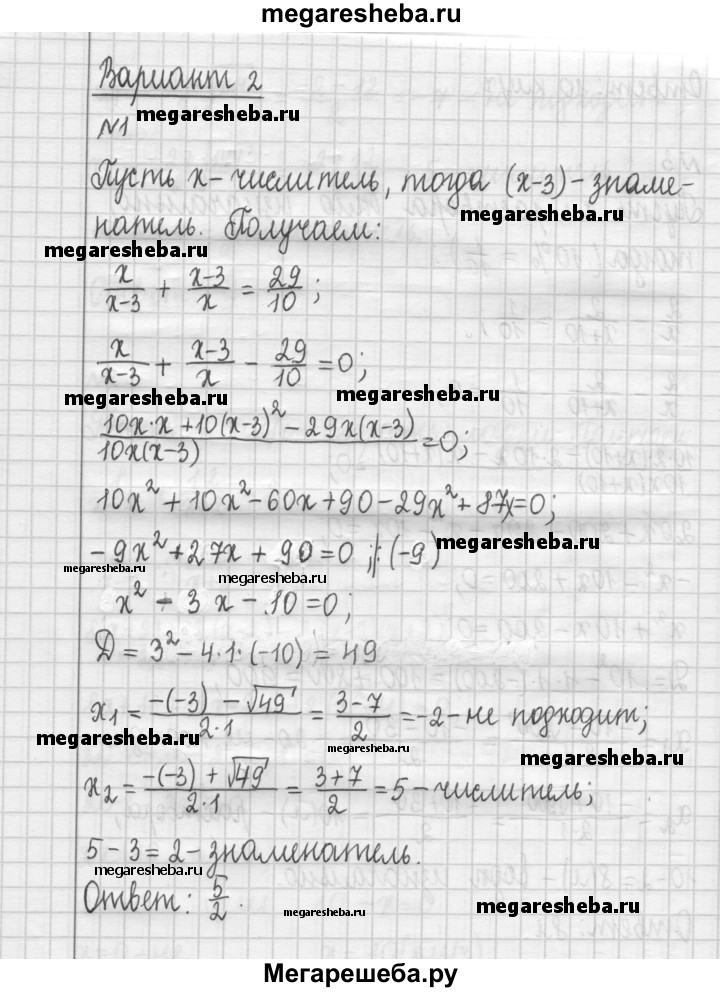 megaresheba.ru
Вариант 2
megaresheba.ru
N1
Пусть x - числитель, тогда (x-3) - знаме-
megaresheba.ru
натель. Получаем:
megaresheba.ru
x/(x-3) + (x-3)/x = 29/10;
megaresheba.ru
x/(x-3) + (x-3)/x - 29/10 = 0;
megaresheba.ru
megaresheba.ru
(10x·x + 10(x-3)² - 29x(x-3))/(10x(x-3)) = 0;
10x² + 10x² - 60x + 90 - 29x² + 87x = 0;
-9x² + 27x + 90 = 0 |:(-9)
megaresheba.ru
megaresheba.ru
megaresheba.ru
x² - 3x - 10 = 0;
Д = 3² - 4·1·(-10) = 49
x₁ = (-(-3) - √49)/(2·1) = (3-7)/2 = -2 - не подходит;
megaresheba.ru
megaresheba.ru
megaresheba.ru
x₂ = (-(-3) + √49)/(2·1) = (3+7)/2 = 5 - числитель;
5 - 3 = 2 - знаменатель.
Ответ: 5/2.
megaresheba.ru
megaresheba.ru
Мегарешеба.ру